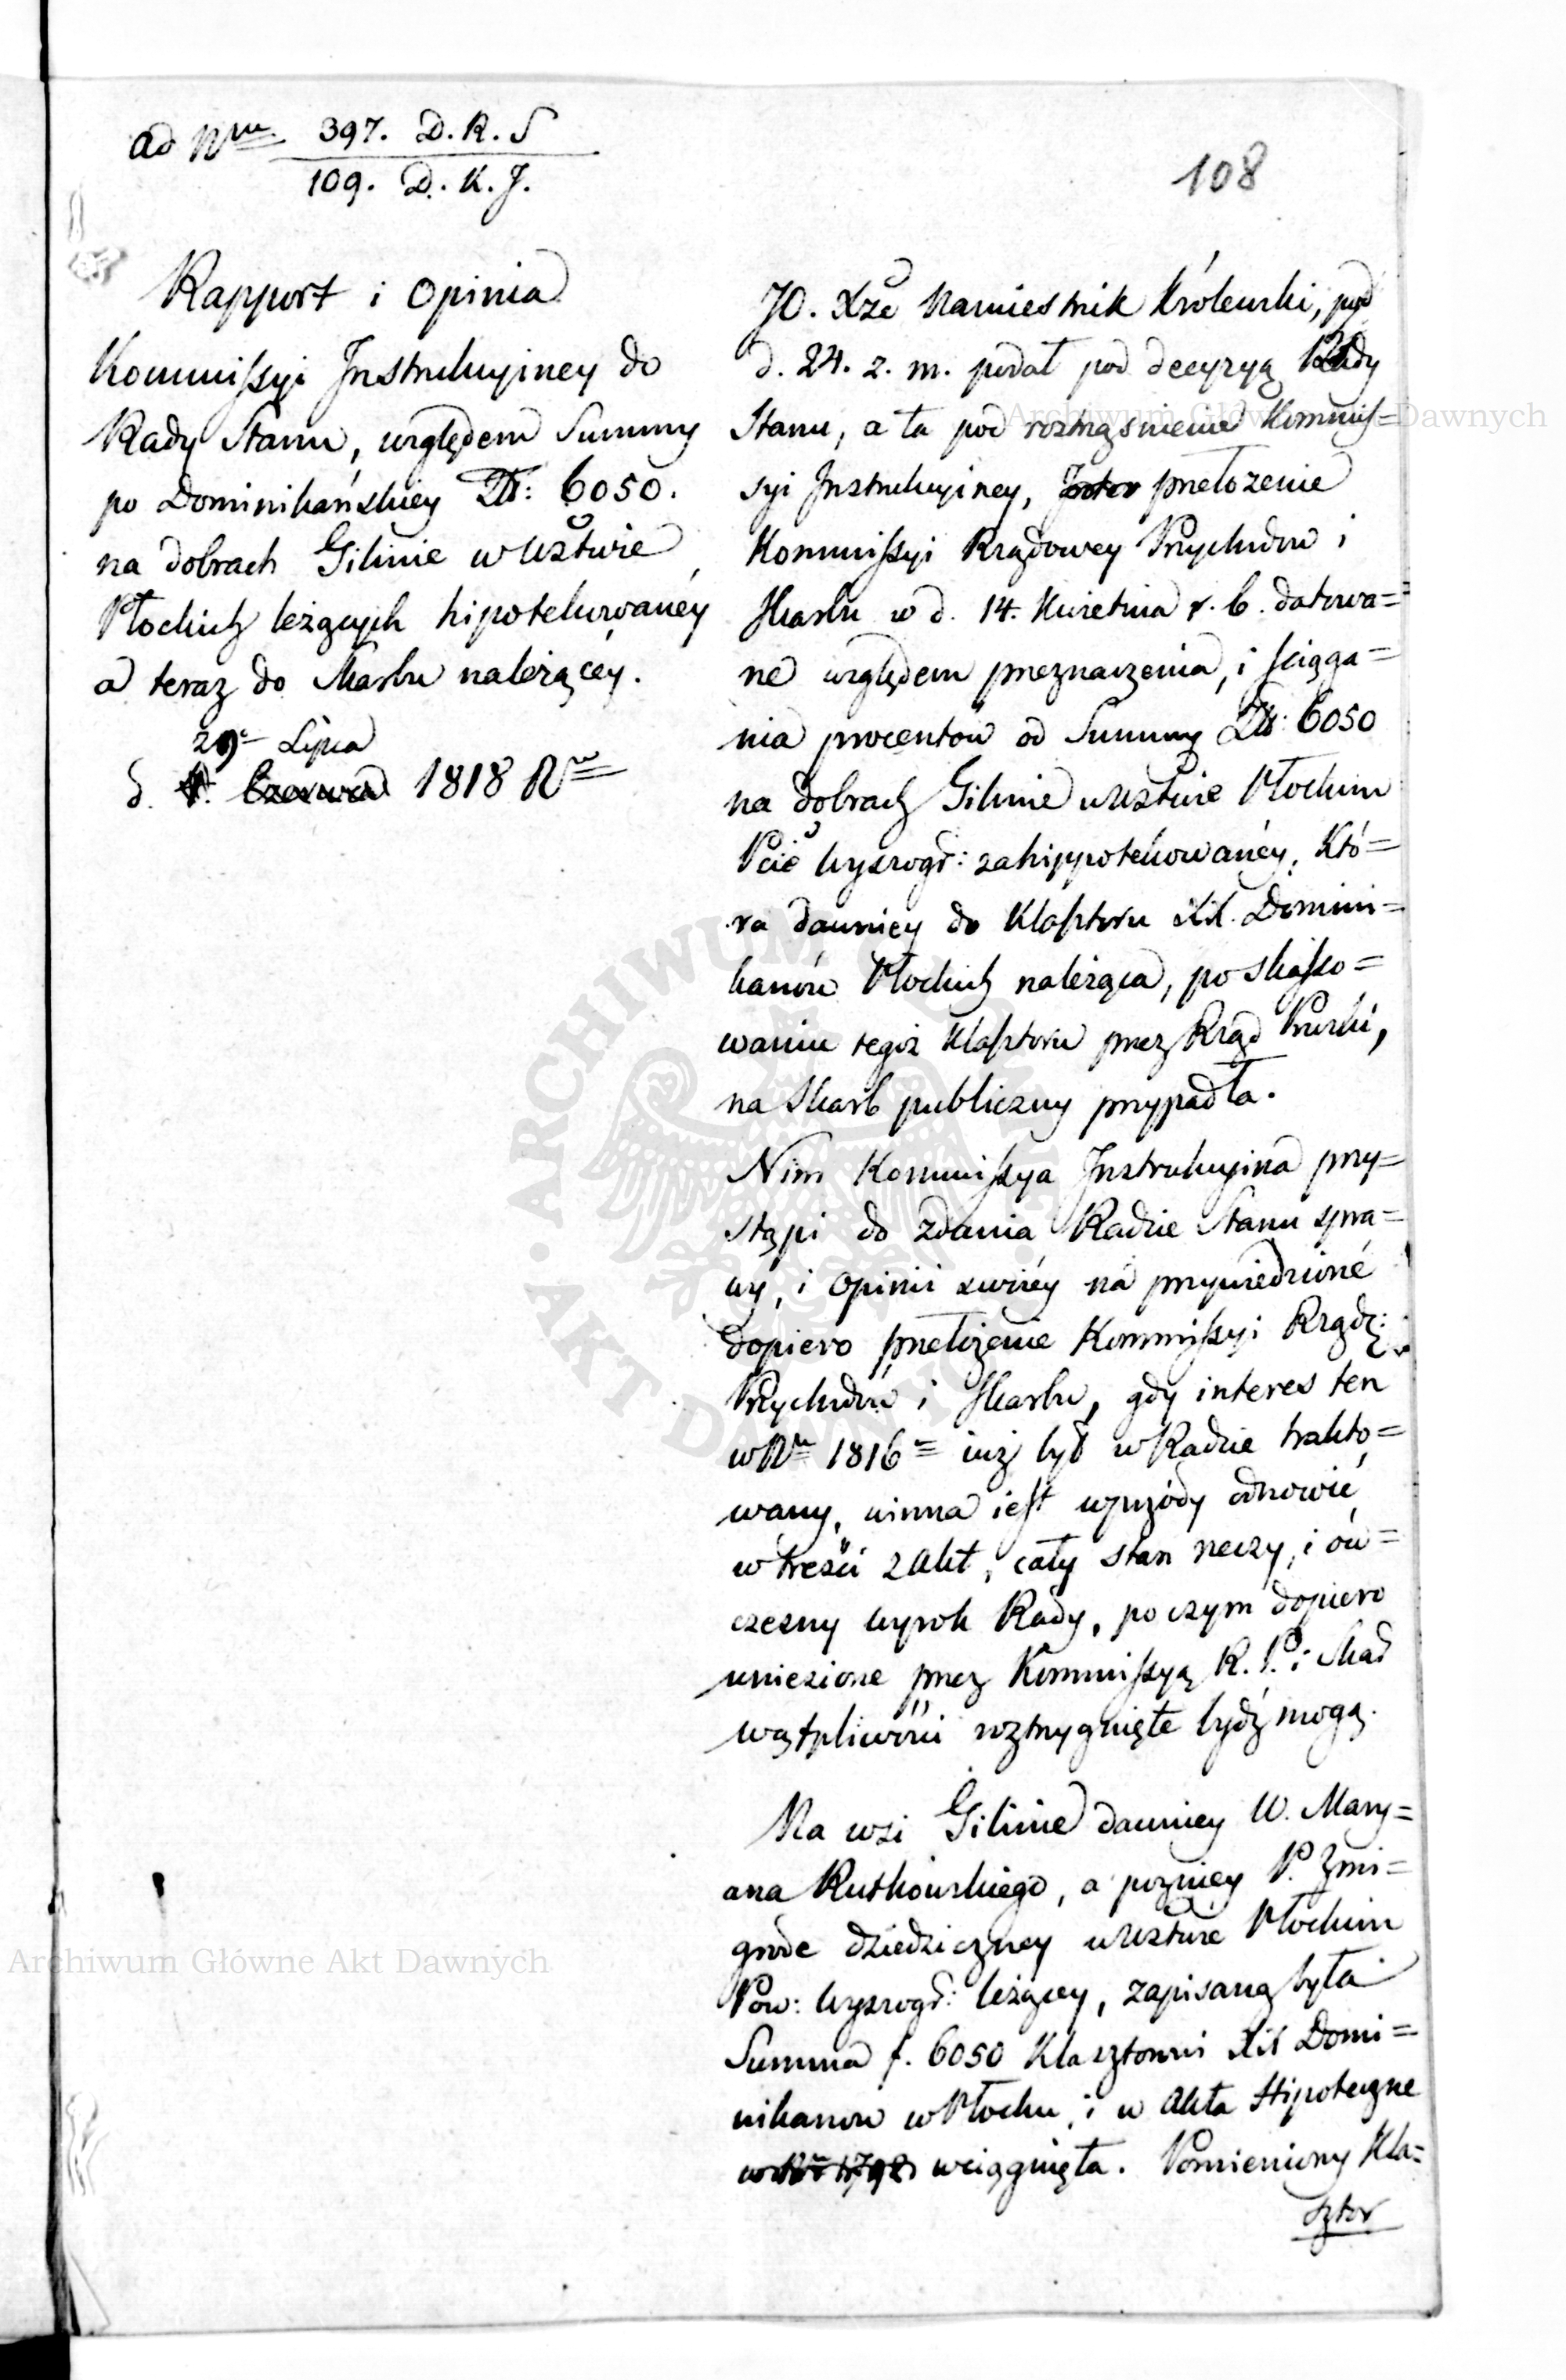 ad Nrm 397. D. R. S
109. D. K. J.
108
Rapport i Opinia
Kommissyi Instrukcyiney do
Rady Stanu, względem Summy
po Dominikańskiey Zł: 6050.
na dobrach Gilinie w Wdztwie
Płockich leżących hipotekowanéy
a teraz do Skarbu należącéy.
29. Lipca
d. Czerwca 1818 R
JO. Xże Namiestnik Królewski, pod
d. 24. z. m. podał pod decyzyą Rady
Stanu, a ta pod roztrząśnienie Kommis=
syi Instrukcyiney, przełożenie
Kommissyi Rządowey Przychodów i
Skarbu w d. 14. Kwietnia r. b. datowa=
ne względem przeznaczenia, i sciąga=
nia procentów od Summy Zł: 6050
na dobrach Gilinie w Wdztwie Płockim
Pcie Wyszogr: zahippotekowanéy, Któ=
ra dawniey do Klasztoru XX. Domini=
kanów Płockich należąca, po skasso=
waniu tegoż Klasztoru przez Rząd Pruski,
na Skarb publiczny przypadła.
Nim Kommissya Instrukcyina przy=
stąpi do zdania Radzie Stanu spra=
wy, i Opinii swéy na przywiedzione
dopiero przełożenie Kommissyi Rządz:
Przychodów i Skarbu, gdy interes ten
w Ru 1816 iuż był w Radzie trakto=
wany, winna iest wprzódy odnowić
w treści z Akt, cały stan rzeczy, i ów=
czesny wyrok Rady, poczym dopiero
wniesione przez Kommissyą R. P. i Skar
wątpliwości roztrzygnięte bydź mogą.
Na wsi Gilinie dawniey W. Mary=
ana Rutkowskiego, a pozniey P. Zmi=
grode dziedziczney w Wdztwie Płockim
Pow: Wyszogr: leżącey, zapisaną była
Summa f. 6050 Klasztorowi XX Domi=
nikanow w Płocku, i w Akta Hipoteczne
w Ru 1798 wciągnięta. Pomieniony Kla=
sztor
Archiwum Główne Akt Dawnych
Archiwum Główne Akt Dawnych
ARCHIWUM GŁÓWNE · AKT DAWNYCH ·